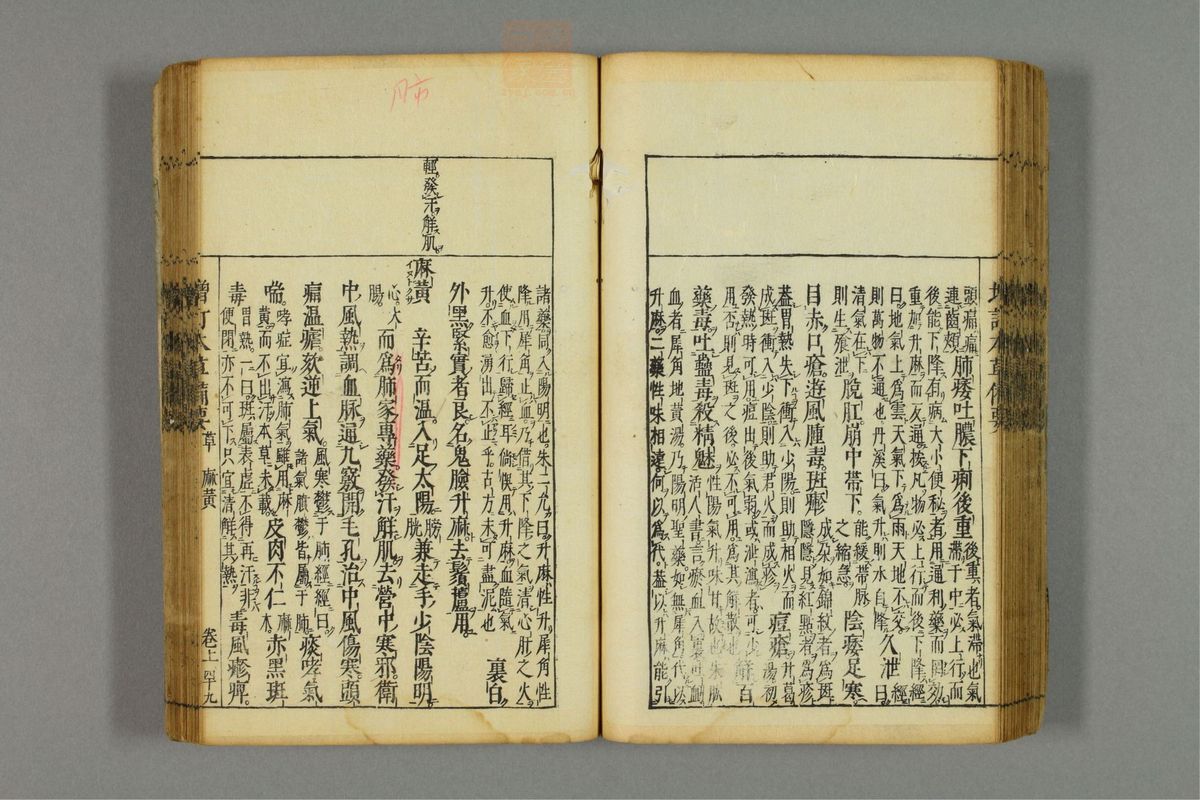 頭痛痛
連齒頰
肺痿吐膿下痢後重
後重者氣滯也氣
滯于中必上行而
後能下降有病大小便秘者用通利藥而罔效
重加升麻而反通
凡物必上行而後下降
經
曰地氣上爲雲天氣下爲雨天地不交
則萬物不通也丹溪曰氣升則水自降
久泄
經曰
清氣在下
則生飧泄
脫肛崩中帶下
能緩帶脉
之縮急
陰痿足寒
目赤口瘡遊風腫毒斑疹
成朶如錦紋者爲斑
隱隱見紅點者爲疹
蓋胃熱失下衝入少陽則助相火而
成斑衝入少陰則助君火而成疹
痘瘡
升葛
湯初
發熱時可用痘出後氣弱或泄瀉者可少
用否則見斑之後必不可用爲其解散也
解百
藥毒吐蠱毒殺精魅
性陽氣升味甘故也朱肱
活人書言瘀血入裏吐血衄
血者犀角地黃湯乃陽明聖藥如無犀角代以
升麻二藥性味相遠何以爲代蓋以升麻能引
諸藥同入陽明也朱二允曰升麻性升犀角性
降用犀角止血乃借其下降之氣清心肝之火
使血下行歸經耳倘悞用升麻血隨氣
升不愈湧出不止乎古方未可盡泥也
裏白
外黑緊實者良名鬼臉升麻去鬚蘆用
輕發汗觧肌
麻黃 辛苦而温入足太陽
膀
胱
兼走手少陰陽明
心大
腸
而爲肺家專藥發汗觧肌去營中寒邪衛
中風熱調血脉通九竅開毛孔治中風傷寒頭
痛温瘧欬逆上氣
風寒鬱于肺經經曰
諸氣膹鬱皆屬于肺
痰哮氣
喘
哮症宜瀉肺氣雖用麻
黃而不出汗本草未載
皮肉不仁
麻
木
赤黑斑
毒
胃熱一曰斑屬表虛不得再汗非
便閉亦不可下只宜清觧其熱
毒風疹痺
增訂本草備要
草 麻黃
卷上 四十九
肺